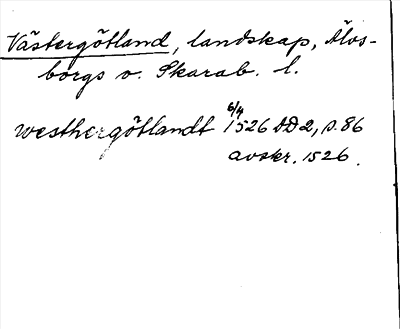 Västergötland, landskap, Älvs-
borgs o. Skarab. l.
westhergötlandt 6/4 1526 ÄD2, s. 86
avskr. 1526.